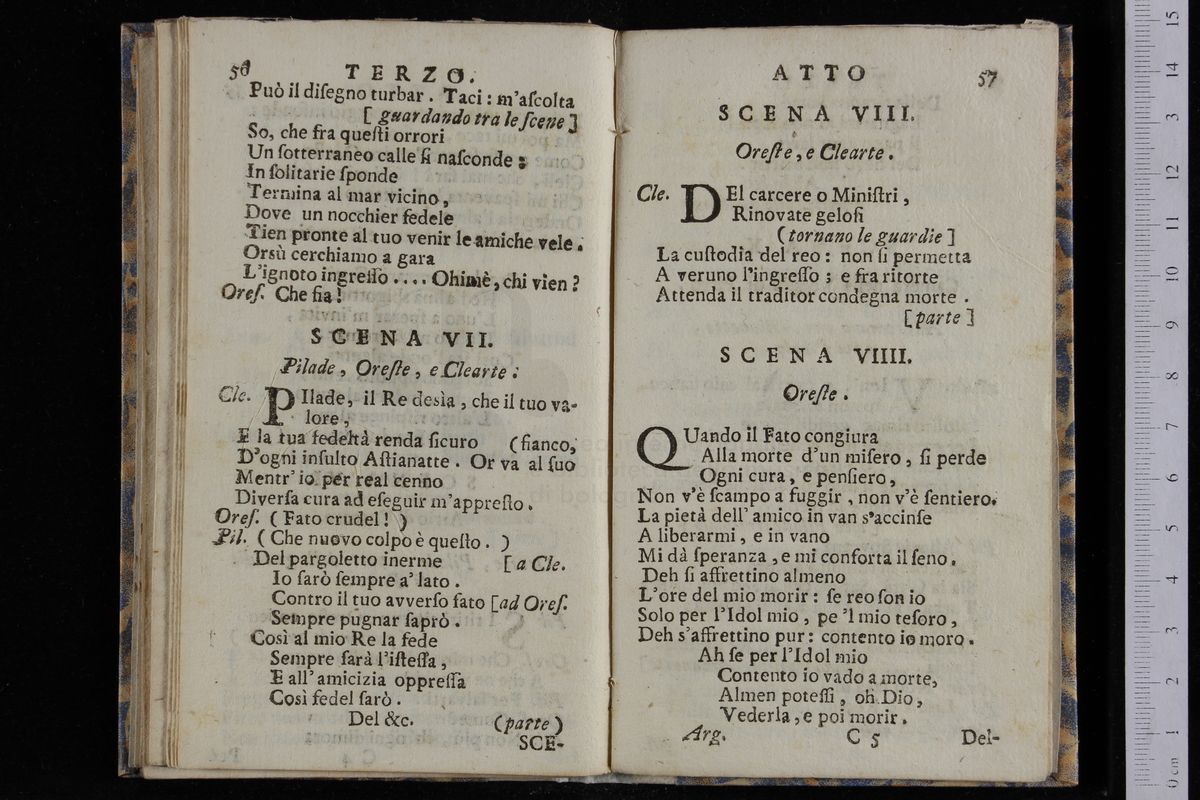 56 TERZO.
Può il diſegno turbar. Taci: m'aſcolta
[ guardando tra le ſcene ]
So, che fra queſti orrori
Un ſotterraneo calle ſi naſconde;
In ſolitarie ſponde
Termina al mar vicino,
Dove un nocchier fedele
Tien pronte al tuo venir le amiche vele.
Orsù cerchiamo a gara
L'ignoto ingreſſo.... Ohimè, chi vien?
Oreſ. Che fia!
SCENA VII.
Pilade, Oreſte, e Clearte.
Cle. PIlade, il Re desìa, che il tuo va-
lore,
E la tua fedeltà renda ſicuro (fianco,
D'ogni inſulto Aſtianatte. Or va al ſuo
Mentr' io per real cenno
Diverſa cura ad eſeguir m'appreſto.
Oreſ. ( Fato crudel! )
Pil. ( Che nuovo colpo è queſto. )
Del pargoletto inerme [a Cle.
Io ſarò ſempre a' lato.
Contro il tuo avverſo fato [ad Oreſ.
Sempre pugnar ſaprò.
Così al mio Re la fede
Sempre ſarà l'iſteſſa,
E all' amicizia oppreſſa
Così fedel ſarò.
Del &c. (parte)
SCE-
ATTO 57
SCENA VIII.
Oreſte, e Clearte.
Cle. DEl carcere o Miniſtri,
Rinovate geloſi
(tornano le guardie]
La cuſtodia del reo: non ſi permetta
A veruno l'ingreſſo; e fra ritorte
Attenda il traditor condegna morte.
[parte]
SCENA VIIII.
Oreſte.
QUando il Fato congiura
Alla morte d'un miſero, ſi perde
Ogni cura, e penſiero,
Non v'è ſcampo a fuggir, non v'è ſentiero.
La pietà dell' amico in van s'accinſe
A liberarmi, e in vano
Mi dà ſperanza, e mi conforta il ſeno.
Deh ſi affrettino almeno
L'ore del mio morir: ſe reo ſon io
Solo per l'Idol mio, pe 'l mio teſoro,
Deh s'affrettino pur: contento io moro.
Ah ſe per l'Idol mio
Contento io vado a morte,
Almen poteſſi, oh Dio,
Vederla, e poi morir.
Arg. C 5 Del-
0 cm 1 2 3 4 5 6 7 8 9 10 11 12 13 14 15